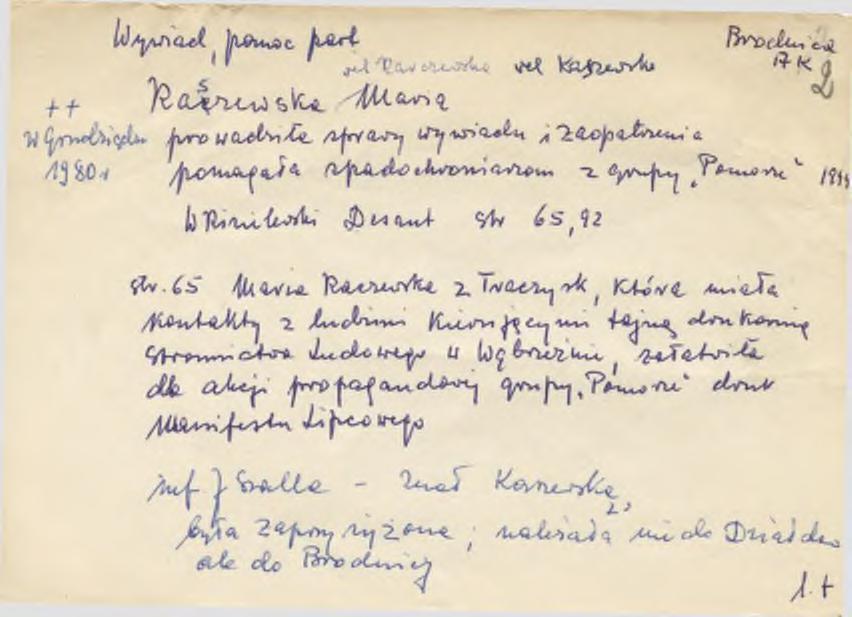 Wywiad, pomoc part
Brodnica
AK
2
vel Raczewska vel Kaszewska
Raszewska Maria
++
w Grudziądzu
1980 r
prowadziła sprawy wywiadu i zaopatrzenia
pomagała spadochroniarzom z grupy „Pomorze" 1944
W Desant str 65, 92
str. 65 Maria Raczewska z Traczysk, która miała
kontakty z ludźmi kierującymi tajną drukarnią
Stronnictwa Ludowego w Wąbrzeźnie, załatwiła
dla akcji propagandowej grupy „Pomorze" druk
Manifestu Lipcowego
inf J Szalla – znał Kaszewską,
była zaprzysiężona; należała nie do Działdowa
ale do Brodnicy
1.+